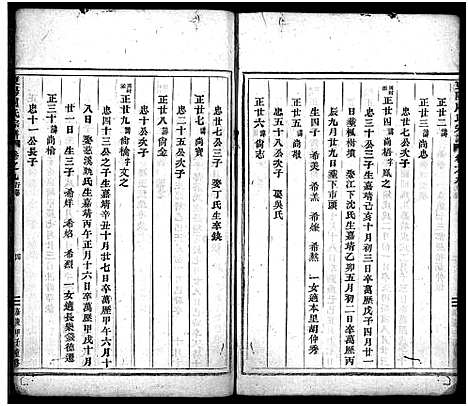 正世二 諱尚忠
正世三
忠三十公三子
正世四 諱尚梧 字鳳之
忠三十公三子生嘉靖己亥十月初三日卒萬歷戊子四月廿
日葬楓樹墳 娶江下沈氏生嘉靖乙卯五月初二日卒萬歷丙
辰九月廿九日葬下市頭
生四子 希美 希燎 希然 一女適本里胡仲秀
正世五 諱尚志
忠十公次子 娶吳氏
正世七 諱尚寶
忠十七公次子 娶丁氏生卒缺
正世八 諱尚金
忠二十五公次子
正世九 諱尚檜 字文之
忠四十三公之子生嘉靖 十月廿七日卒萬歷甲午六月十
八日 娶慈溪姚氏生嘉靖丙午正月十六日卒萬歷甲戌十月
十一日 生三子 希烊 希焰 希烈 一女適長樂裘德遷
正三十 諱尚榆
忠十一公長子
四